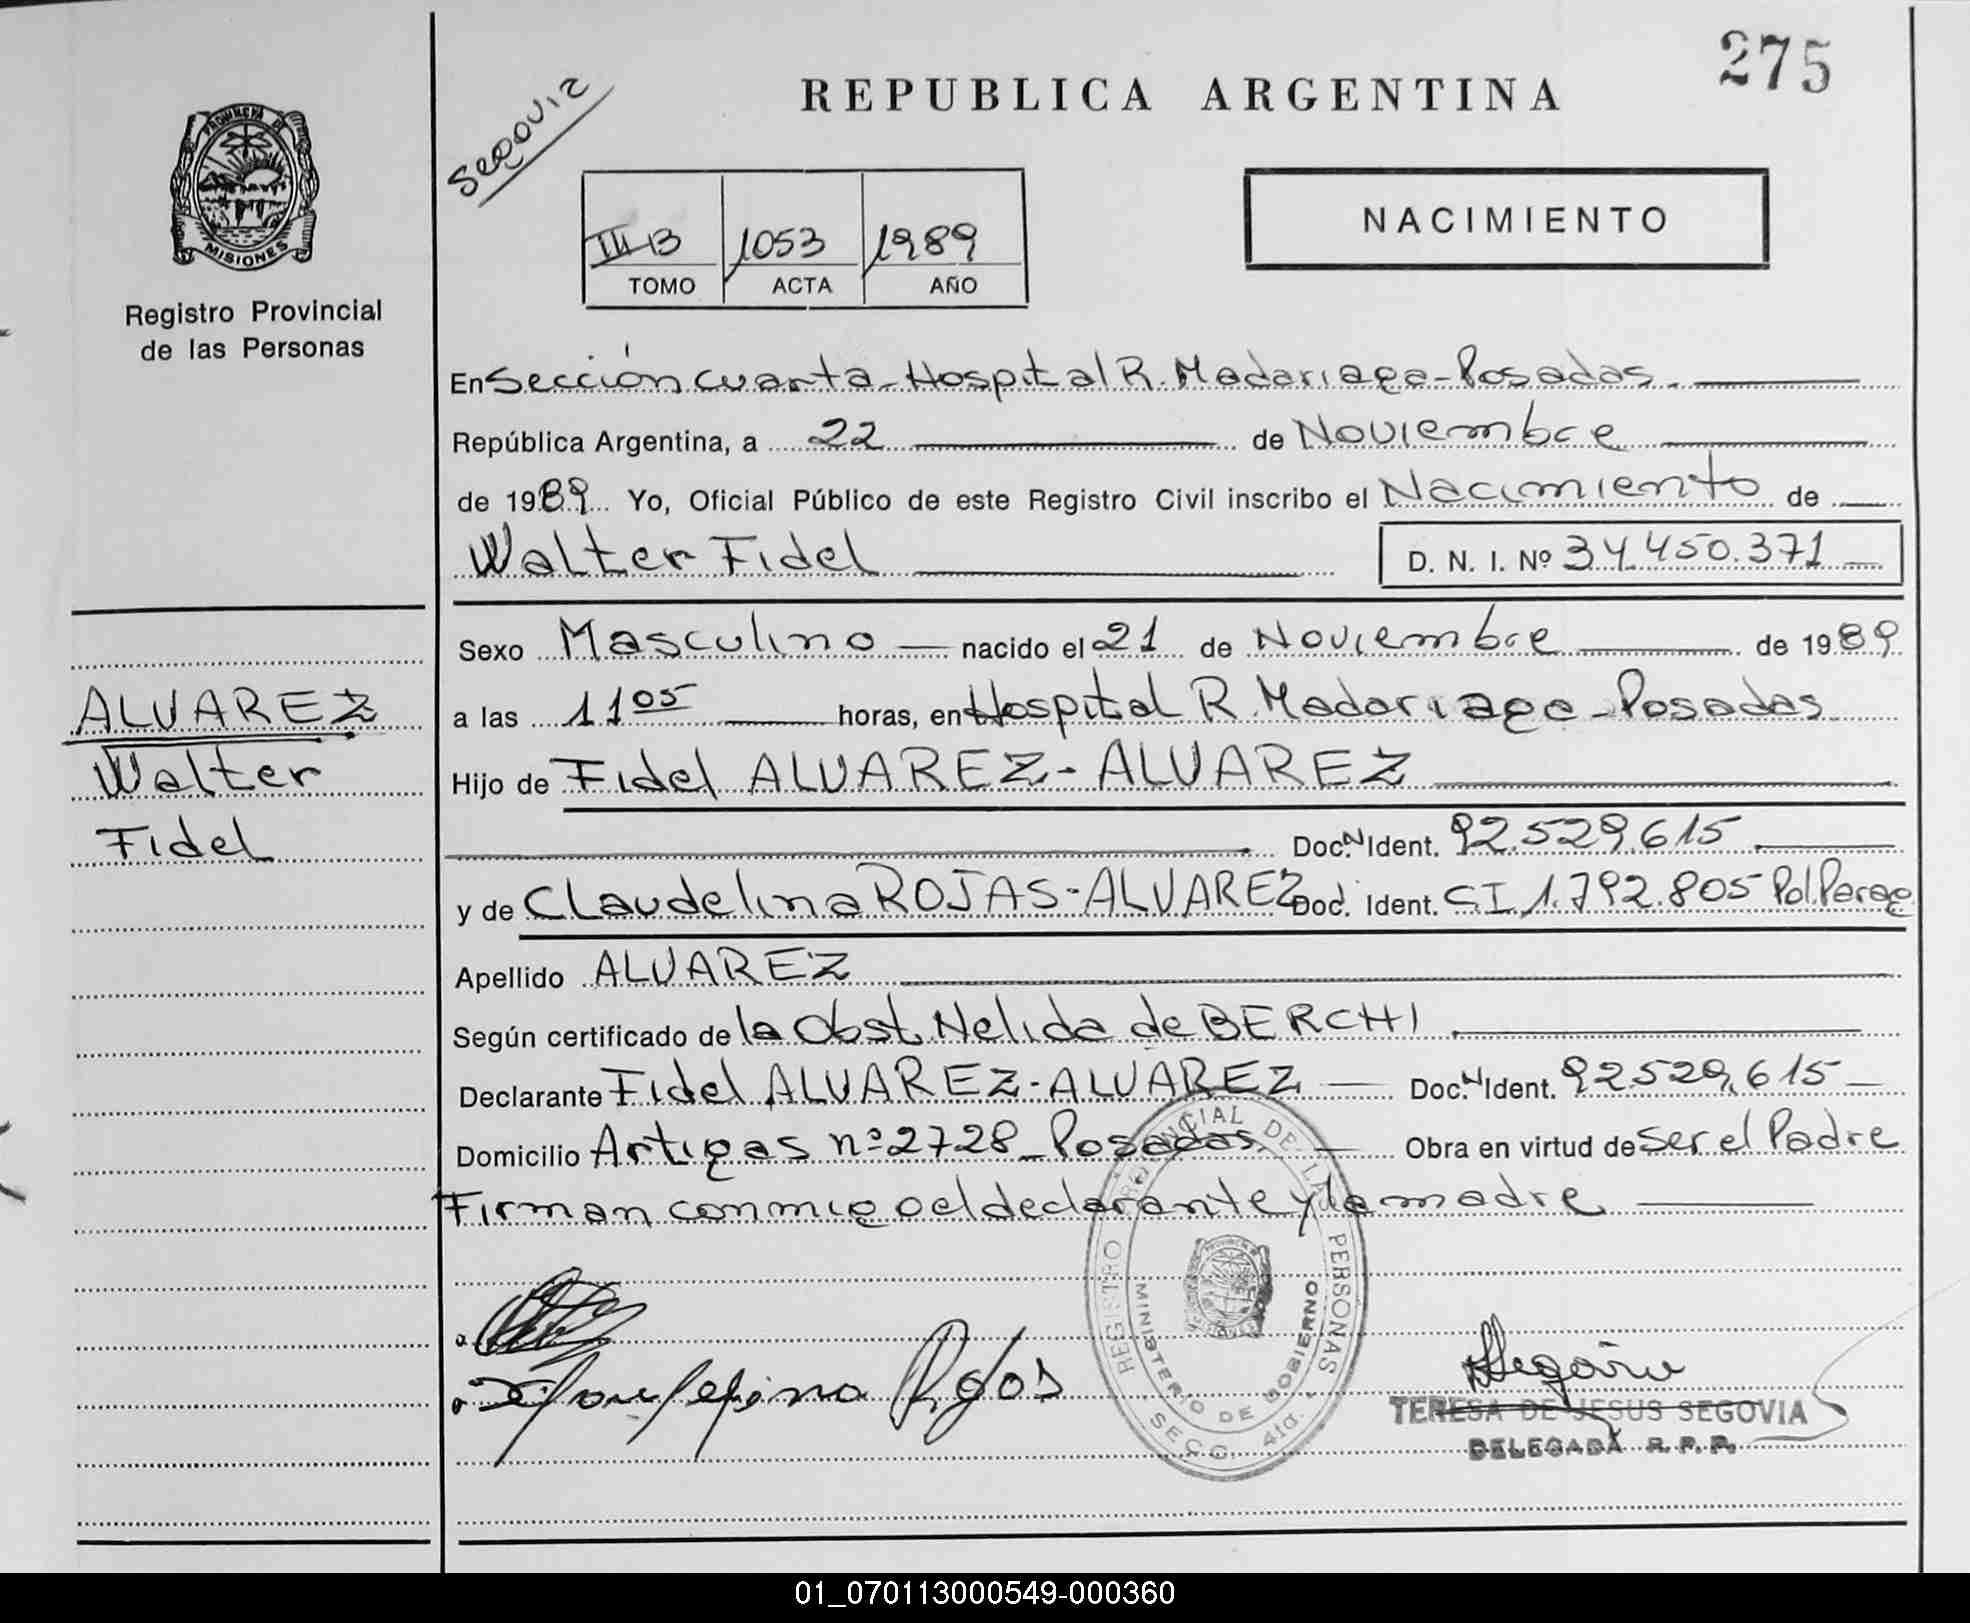 275
REPUBLICA ARGENTINA
SEGOVIA
PROVINCIA DE
MISIONES
Registro Provincial
de las Personas
NACIMIENTO
III B 1053 1989
TOMO ACTA AÑO
En Sección cuarta - Hospital R. Madariaga - Posadas.
República Argentina, a 22 de Noviembre
de 1989 Yo, Oficial Público de este Registro Civil inscribo el Nacimiento de
Walter Fidel D. N. I. Nº 34.450.371
Sexo Masculino nacido el 21 de Noviembre de 1989
a las 11 05 horas, en Hospital R. Madariaga - Posadas
Hijo de Fidel ALVAREZ - ALVAREZ
Doc. N Ident. 92.529.615
y de Claudelina ROJAS - ALVAREZ Doc. Ident. CI 1.792.805 Pol. Parag
Apellido ALVAREZ
Según certificado de la Obst. Nelida de BERCHI
Declarante Fidel ALVAREZ - ALVAREZ Doc. N Ident. 92.529.615
Domicilio Artigas nº 2728 - Posadas Obra en virtud de ser el Padre
Firman conmigo el declarante y la madre
ALVAREZ
Walter
Fidel
REGISTRO PROVINCIAL DE LAS PERSONAS
MINISTERIO DE GOBIERNO
SECC. 4ta.
Rojas
Segovia
TERESA DE JESUS SEGOVIA
DELEGADA R. P. P.
01_070113000549-000360